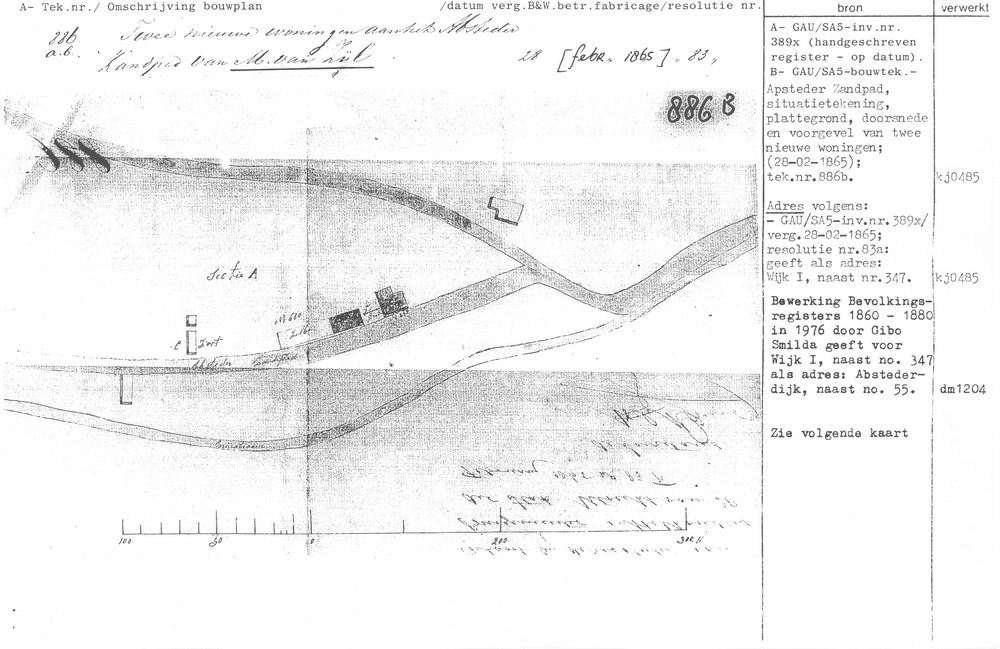 A- Tek.nr./ Omschrijving bouwplan /datum verg.B&W.betr.fabricage/resolutie nr. bron verwerkt
886 a.b. Twee nieuwe woningen aan het Absteder
Zandpad van M. van Zijl 28 [febr. 1865] „ 83 „
886 B
Sectie A
No 600
C
Absteder
100 50 0 200 300 El
A- GAU/SA5-inv.nr.
389x (handgeschreven
register - op datum).
B- GAU/SA5-bouwtek.-
Apsteder Zandpad,
situatietekening,
plattegrond, doorsnede
en voorgevel van twee
nieuwe woningen;
(28-02-1865);
tek.nr.886b. kj0485
Adres volgens:
- GAU/SA5-inv.nr.389x/
verg.28-02-1865;
resolutie nr.83a:
geeft als adres:
Wijk I, naast nr.347. kj0485
Bewerking Bevolkings-
registers 1860 - 1880
in 1976 door Gibo
Smilda geeft voor
Wijk I, naast no. 347
als adres: Absteder-
dijk, naast no. 55. dm1204
Zie volgende kaart